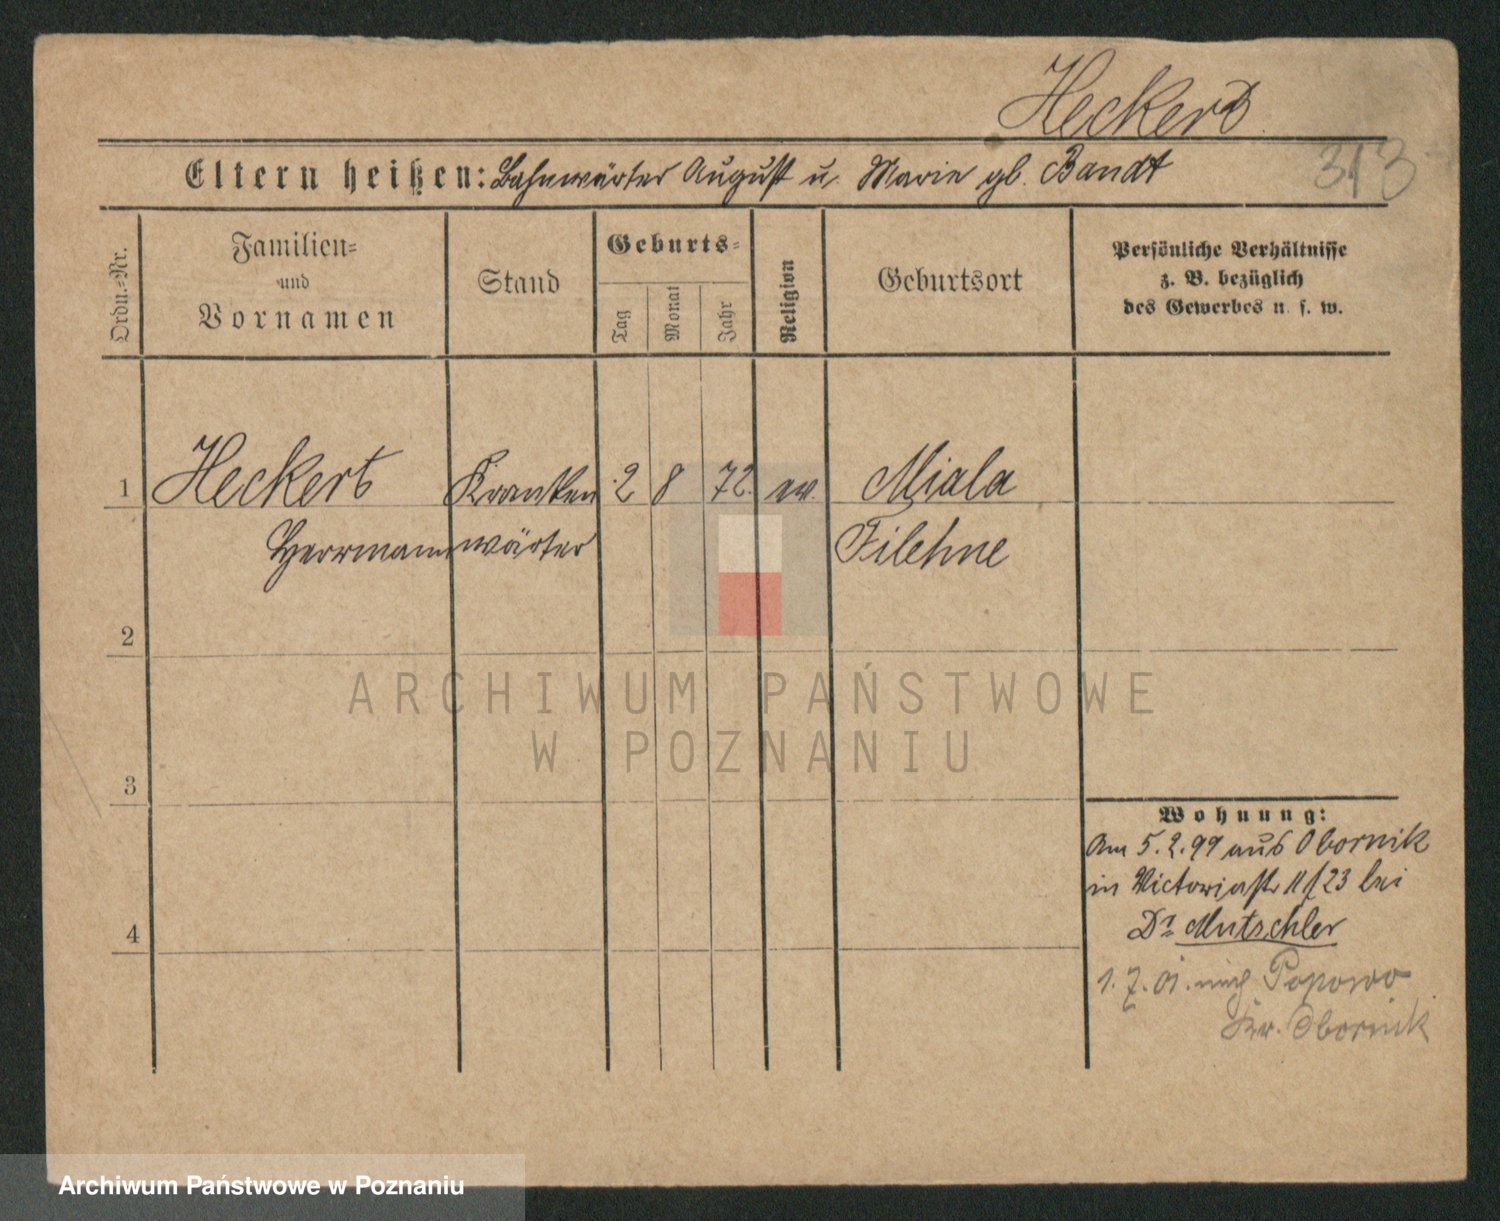 Heckert
313
Eltern heißen: Bahnwärter August u. Marie gb. Bandt
Ordn.=Nr.
Familien=
und
Vornamen
Stand
Geburts=
Tag
Monat
Jahr
Religion
Geburtsort
Persönliche Verhältnisse
z. B. bezüglich
des Gewerbes u. s. w.
1 Heckert Kranken 2 8 72. ev. Miala
Herrmann wärter Filehne
2
ARCHIWUM PAŃSTWOWE
W POZNANIU
3
Wohnung:
Am 5.2.99 aus Obornik
in Victoriastr 11/23 bei
4
Dr Mutschler
1.7.01. nach Popowo
Kr. Obornik
Archiwum Państwowe w Poznaniu